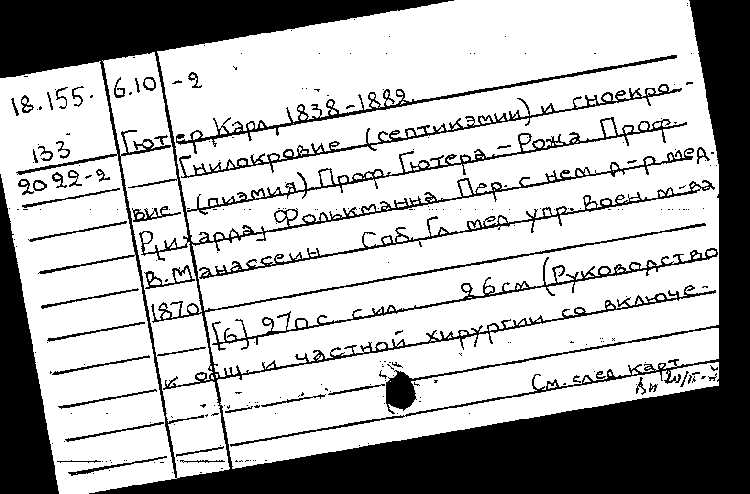 18.155. 6.10 -2
133 Гютер, Карл, 1838-1882.
2022-2 Гнилокровие (септикэмии) и гноекро-
вие (пиэмия) Проф. Гютера. - Рожа. Проф.
Рихарда Фолькманна. Пер. с нем. д-р мед.
В. Манассеин Спб, Гл. мед. упр. воен. м-ва,
1870
[6], 270 с. с ил. 26 см (Руководство
к общ. и частной хирургии со включе-
См. след. карт.